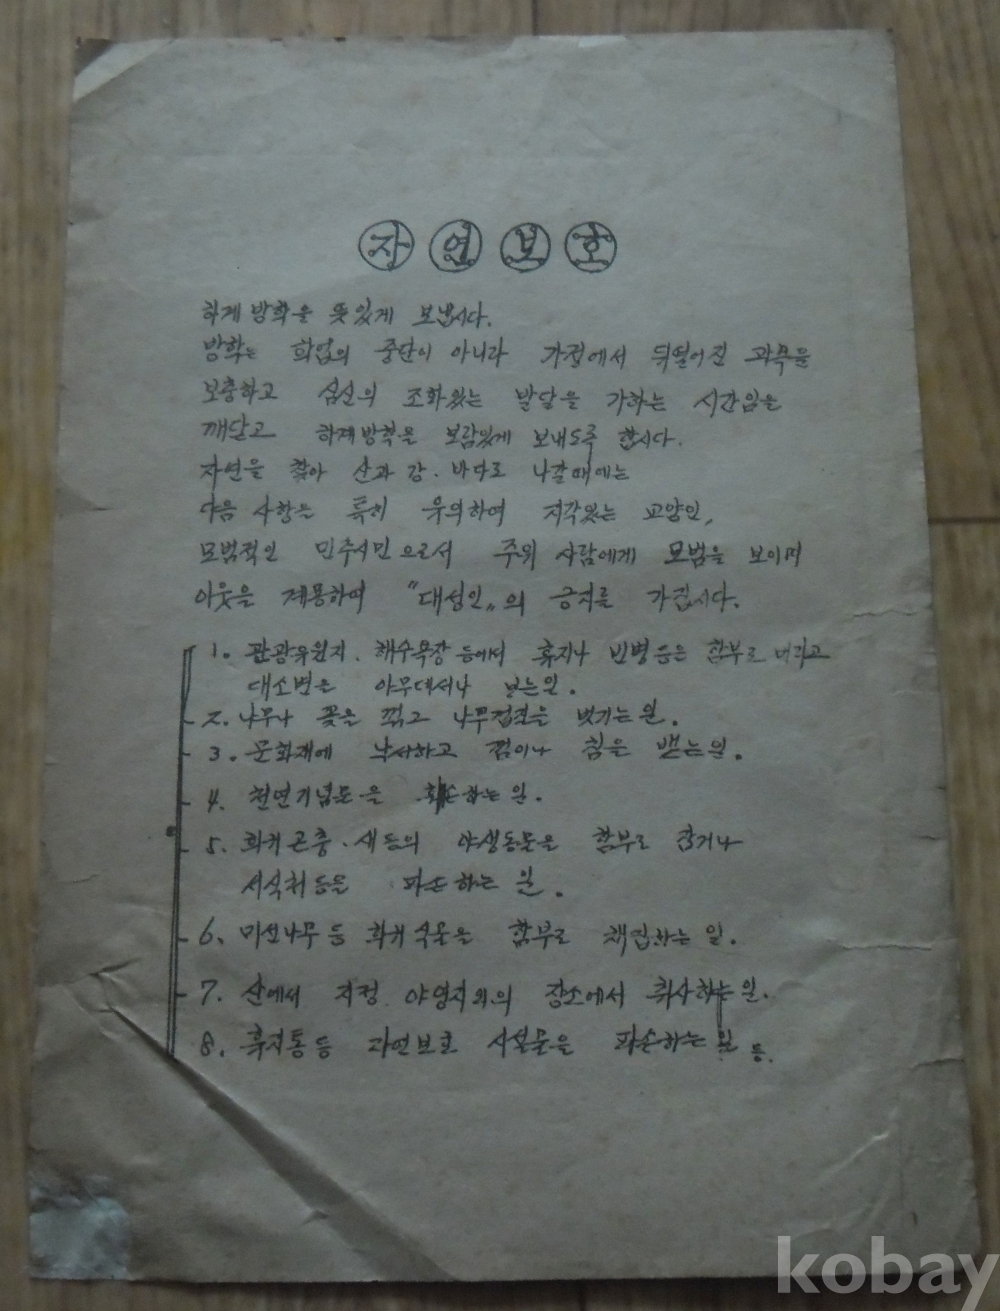 자연보호
하계방학을 뜻있게 보냅시다.
방학은 학업의 중단이 아니라 가정에서 뒤떨어진 과목을
보충하고 심신의 조화있는 발달을 가하는 시간임을
깨닫고 하계방학을 보람있게 보내도록 합시다.
자연을 찾아 산과 강·바다로 나갈때에는
다음 사항을 특히 유의하여 지각있는 교양인,
모범적인 민주시민으로서 주위 사람에게 모범을 보이며
이웃을 계몽하여 "대성인„의 긍지를 가집시다.
1. 관광유원지. 해수욕장 등에서 휴지나 빈병등은 함부로 버리고
대소변을 아무데서나 보는일.
2. 나무나 꽃을 꺾고 나무껍질을 벗기는 일.
3. 문화재에 낙서하고 껌이나 침을 뱉는일.
4. 천연기념물을 훼손하는 일.
5. 희귀곤충·새등의 야생동물을 함부로 잡거나
서식처등을 파손하는 일.
6. 미선나무 등 희귀식물을 함부로 채집하는 일.
7. 산에서 지정 야영지외의 장소에서 취사하는일.
8. 휴지통등 자연보호 시설물을 파손하는 일 등.
kobay